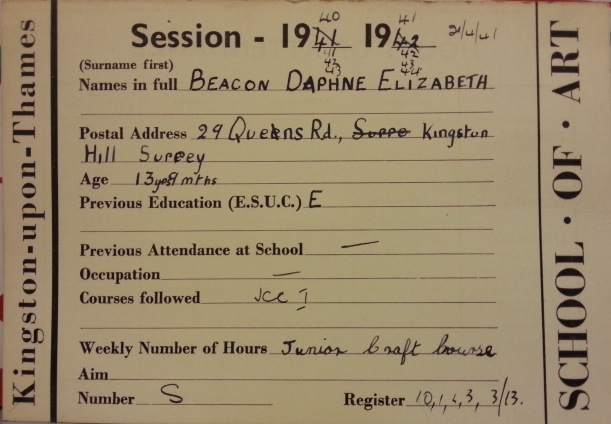 Kingston-upon-Thames
40 41
Session - 1941 1942 21/4/41
41 42
42 43
43 44
(Surname first)
Names in full BEACON DAPHNE ELIZABETH
Postal Address 29 Queens Rd., Surre Kingston
Hill Surrey
Age 13 yrs 9 mths
Previous Education (E.S.U.C.) E
Previous Attendance at School —
Occupation —
Courses followed JCC I
Weekly Number of Hours Junior Craft Course
Aim
Number S Register 10, 1, 2, 3, 3/13.
SCHOOL · OF · ART